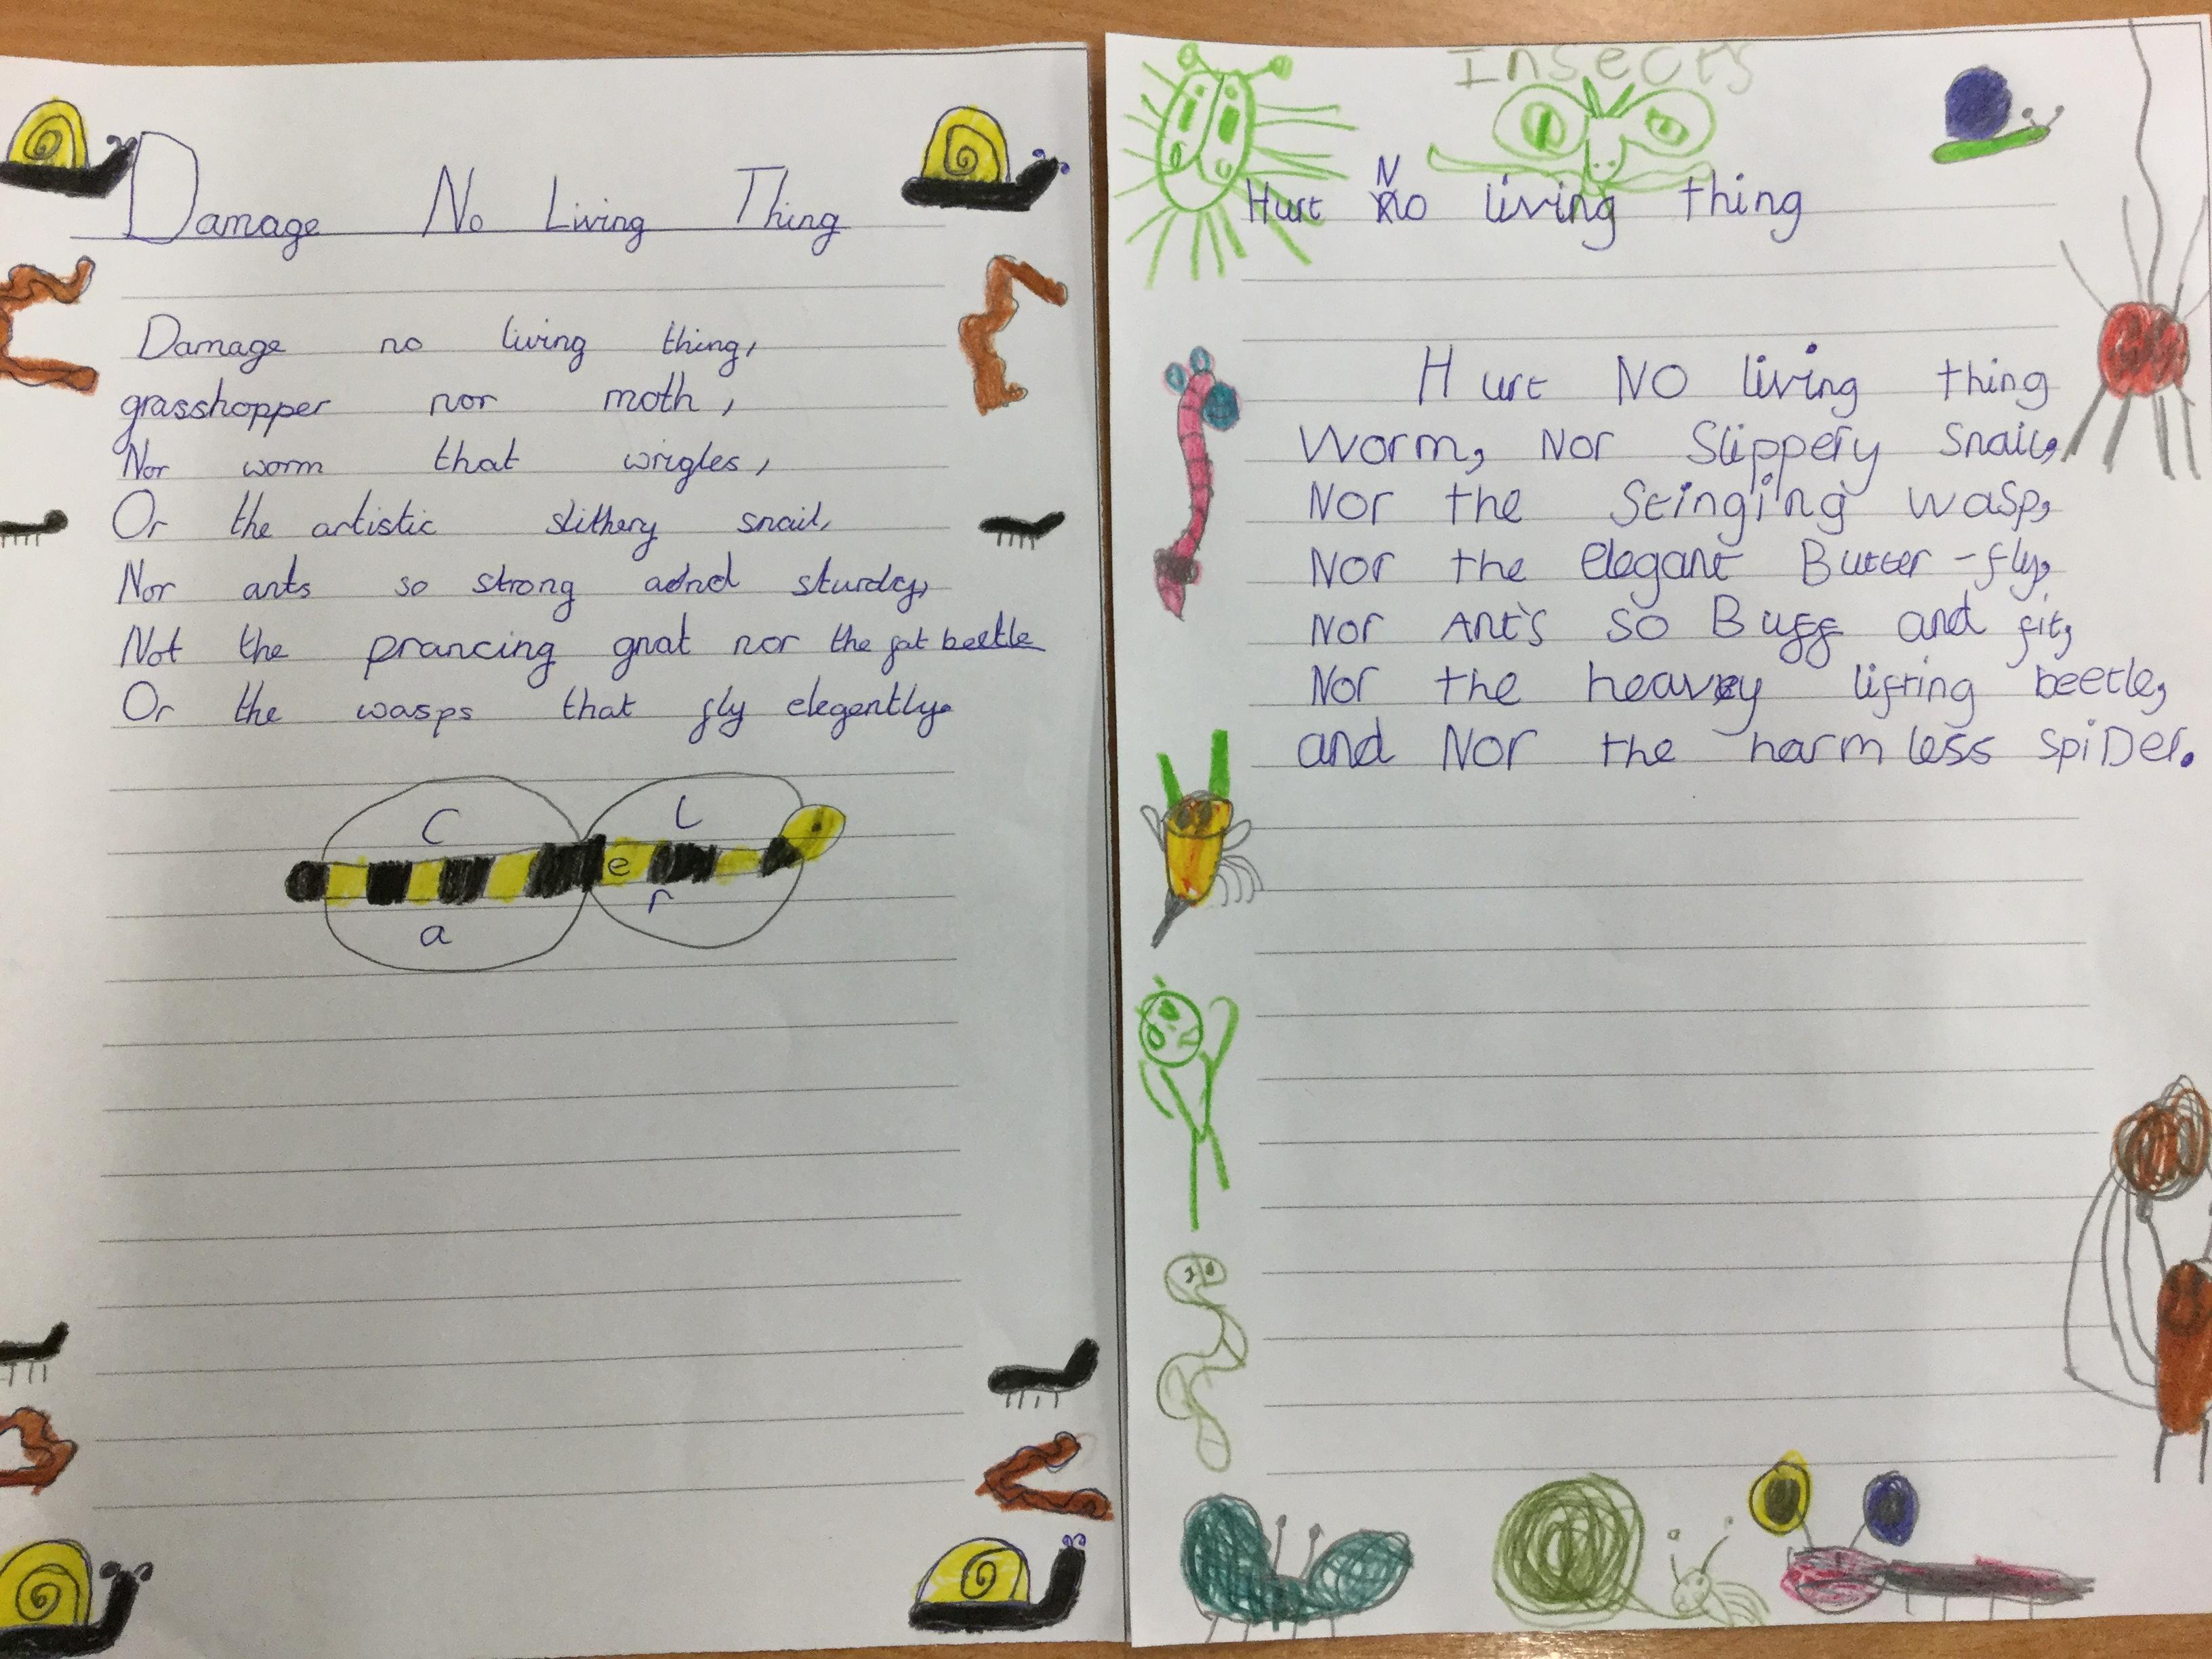 Damage No Living Thing
Damage no living thing,
grasshopper nor moth,
Nor worm that wrigles,
Or the artistic slithery snail,
Nor ants so strong and sturdy,
Not the prancing gnat nor the fat beetle
Or the wasps that fly elegently.
C L
e
a r
Insects
Hurt No living thing
Hurt NO living thing
Worm, Nor Slippery Snail,
Nor the Stinging wasp,
Nor the elegant Butter-fly,
Nor Ant's so Buff and fit,
Nor the heavey lifting beetle,
and Nor the harmless spiDer.